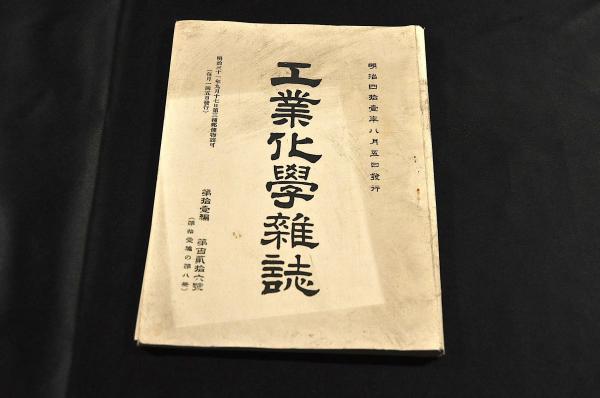 明治四拾壹年八月五日發行
工業化學雜誌
明治三十一年九月十七日第三種郵便物認可
（每月一回五日發行）
第拾壹編 第百貳拾六號
（第拾壹編の第八册）